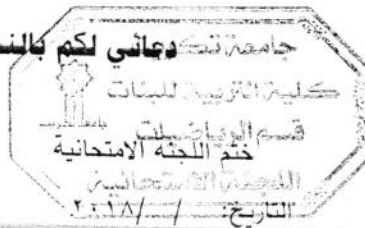 دعائي لكم بالن
جامعة تك
كلية التربية للبنات
قسم الرياضيات
ختم اللجنة الامتحانية
اللجنة الامتحانية
التاريخ: / / ٢٠١٨